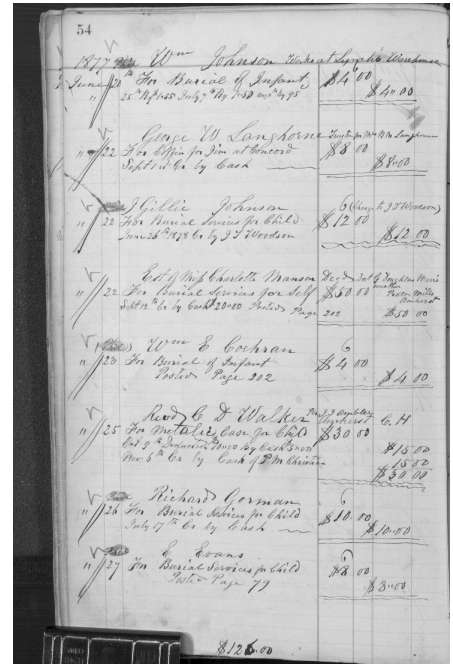 54
1877 Wm Johnson Works at Lynch's Warehouse
June 20th For Burial of Infant $4 00
25th By $1.55 July 7th By 1.50 by 95 $4.00
George W Langhorne
" 22 For Coffin for Jim at Concord $8 00
Sept 1st Cr by Cash $8.00
J Gillie Johnson (Charge to J T Woodson)
" 22 For Burial Services for Child $12 00
June 26th 1878 Cr by J T Woodson $12 00
Est of Miss Charlotte Manson Decd
" 22 For Burial Services for Self $50 00
Sept 12th Cr by Cash $20.00 Posted Page 202 $50 00
Wm E Cochran
" 23 For Burial of Infant $4 00
Posted Page 202 $4 00
Revd C D Walker Amherst C. H
" 25 For Metalic Case for Child $30 00
Oct 9th By Cash $15
Nov 6th Cr by Cash of P M Christian 15 00
$30 00
Richard Gorman
" 26 For Burial Services for Child $10 00
July 17th Cr by Cash $10.00
E Evans
" 27 For Burial Services for Child $8 00
Posted Page 79 $8.00
$126.00